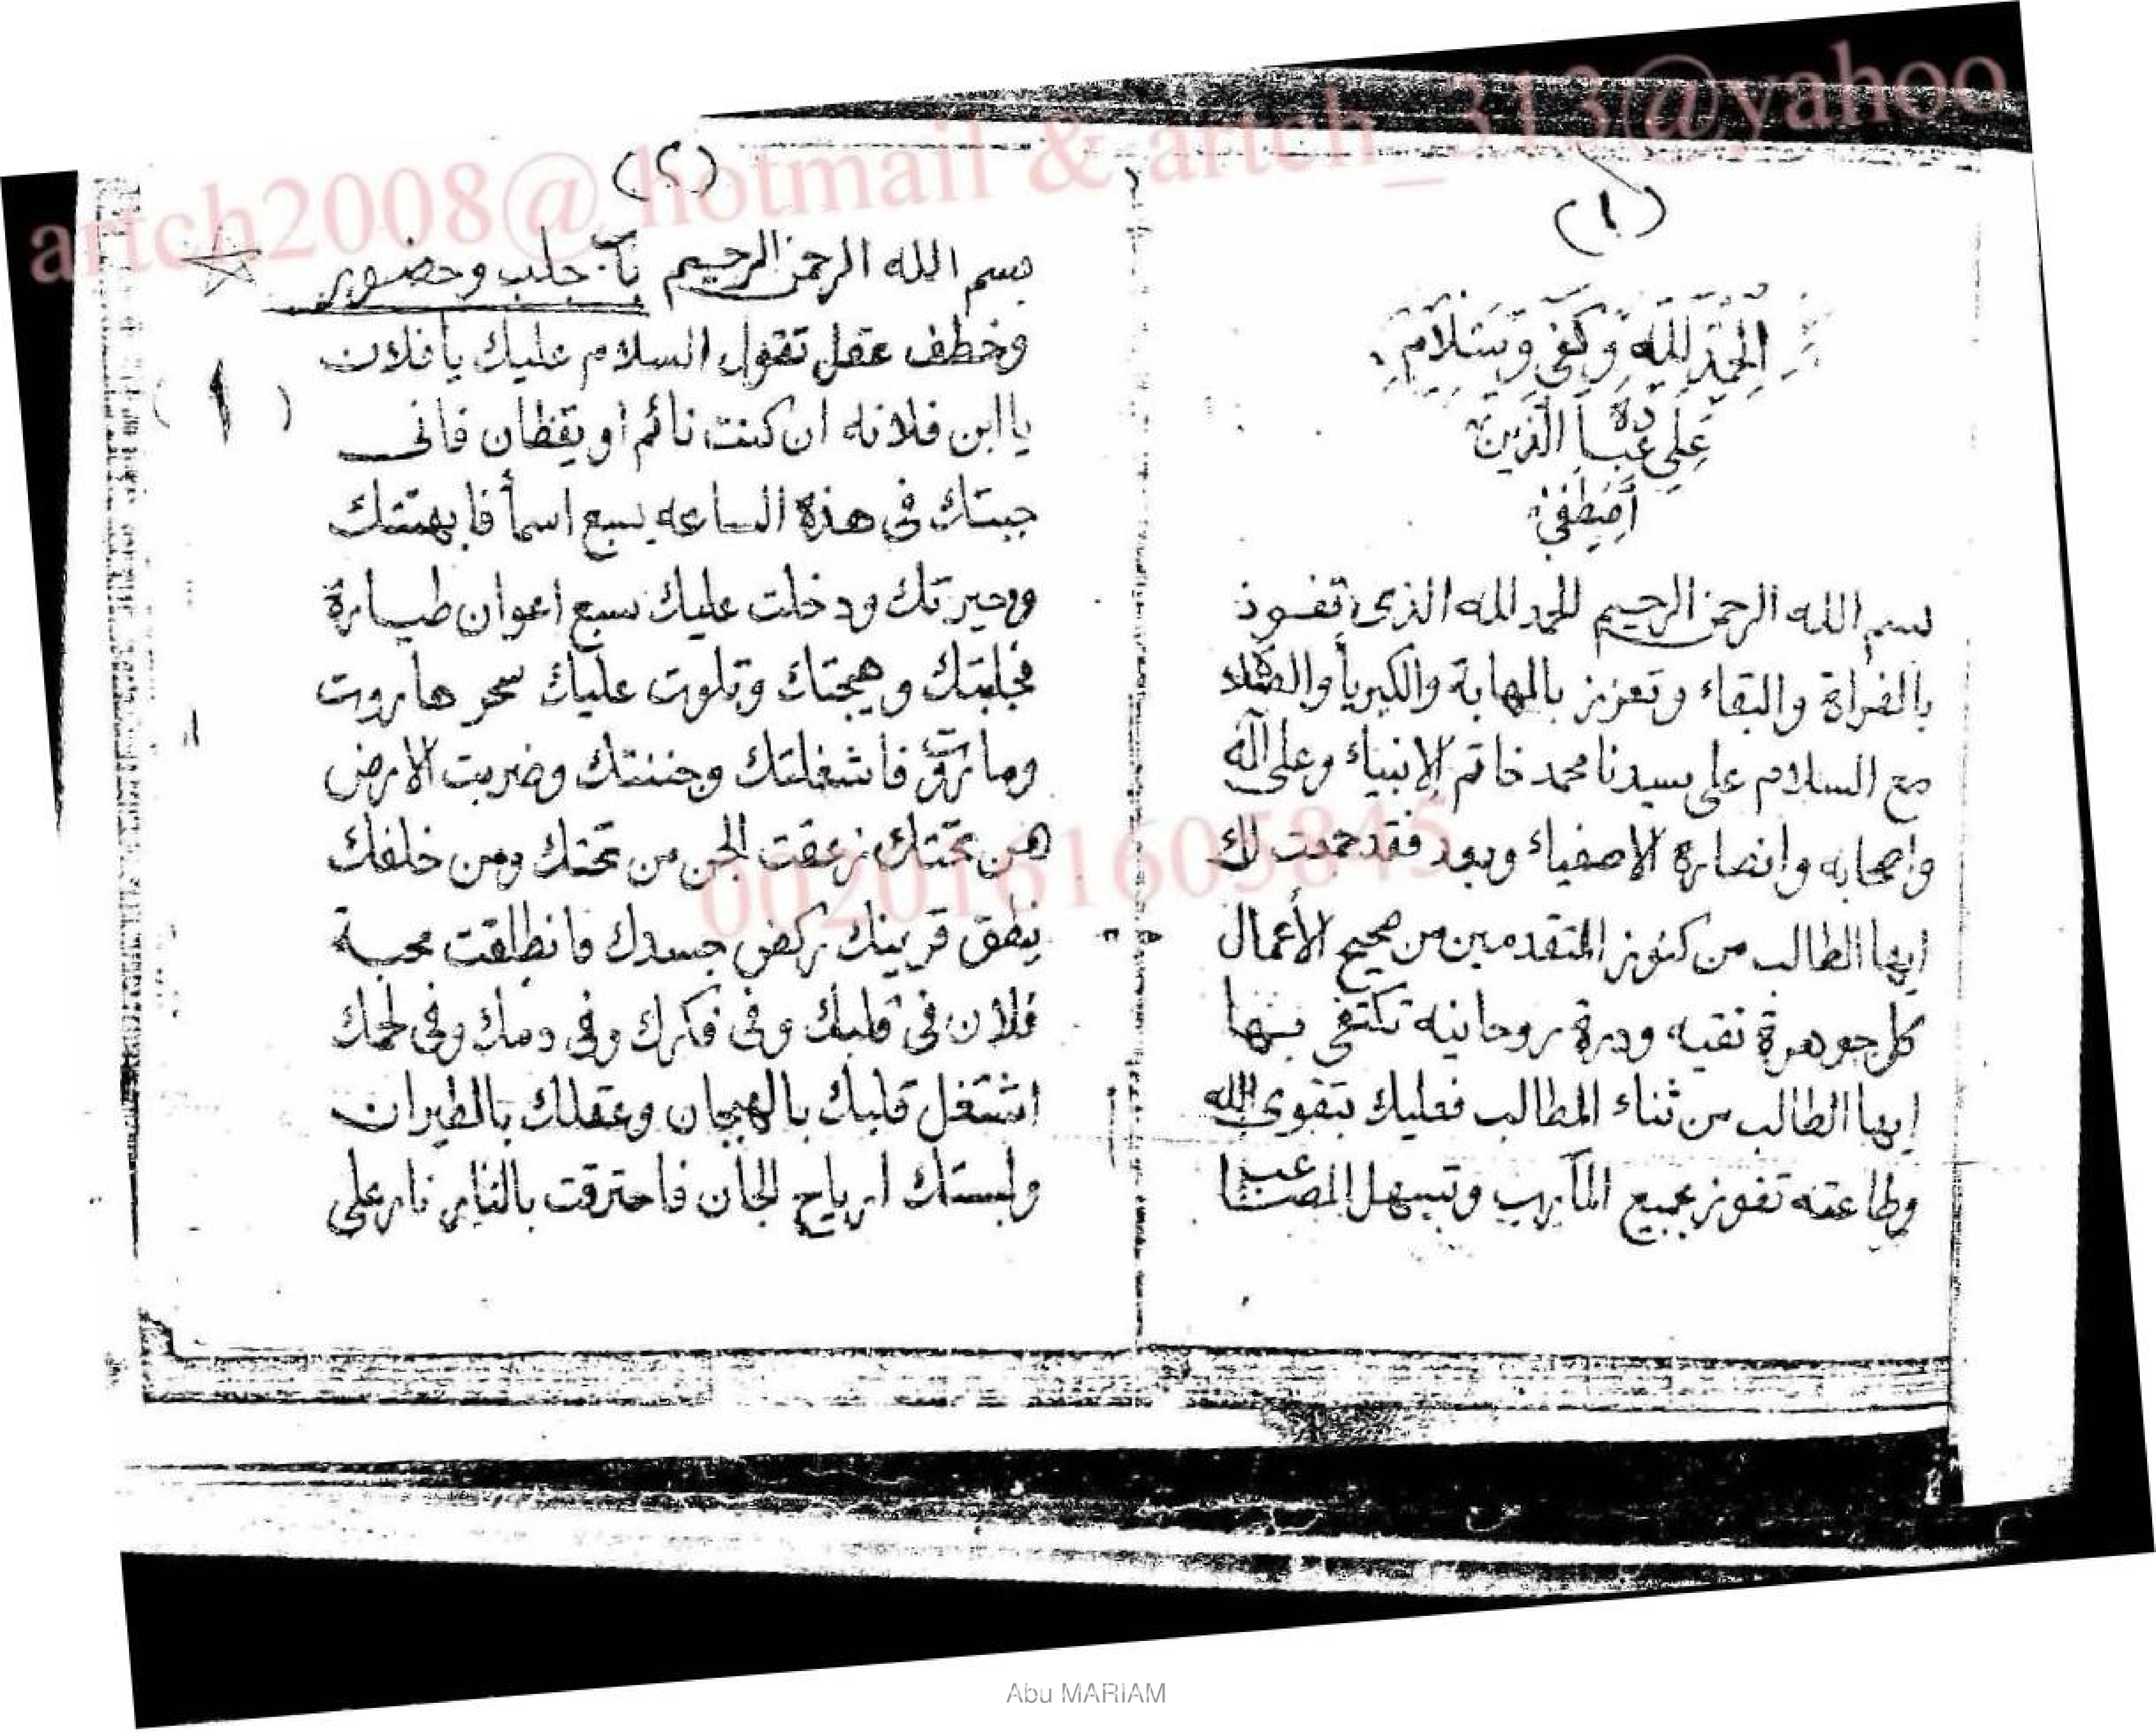 artch2008@hotmail & artch_313@yahoo
(١)
الحَمْدُ لِلَّهِ وَكَفَى وَسَلَامٌ
عَلَى عِبَادِهِ الَّذِينَ
أصْطَفَى
بسم الله الرحمن الرحيم الحمد لله الذى تفوذ
بالفراة والبقاء وتعزز بالمهابة والكبريأ والصلاه
مع السلام على سيدنا محمد خاتم الانبياء وعلى آله
واصحابه وانصاره الاصفياء وبعد فقد جمعت لك
ايها الطالب من كنوز المتقدمين من صحيح الأعمال
كل جوهرة نقيه ودرة روحانيه تكتفى بها
ايها الطالب من ثناء المطالب فعليك بتقوى الله
وطاعته تفوز بجميع المآرب وتسهل المصاعب
(٢)
بسم الله الرحمن الرحيم بآ. جلب وحضور
وخطف عقل تقول السلام عليك يا فلان
يا ابن فلانه ان كنت نائم او يقظان فانى
(١)
جبتك فى هذه الساعه بسبع اسمأ فابهتتك
وحيرتك ودخلت عليك سبع اعوان طياره
فجلبتك وهيجتك وتلوت عليك سحر هاروت
وماروت فاشغلتك وجننتك وضربت الارض
من تحتك زعقت الجن من تحتك ومن خلفك
ينطق قرينك ركض جسدك فانطلقت محبة
فلان فى قلبك وفى فكرك وفى دمك وفى لحمك
اشتغل قلبك بالهيجان وعقلك بالطيران
ولبستك ارياح الجان فاحترقت بالنار نار على
0020161605845
Abu MARIAM